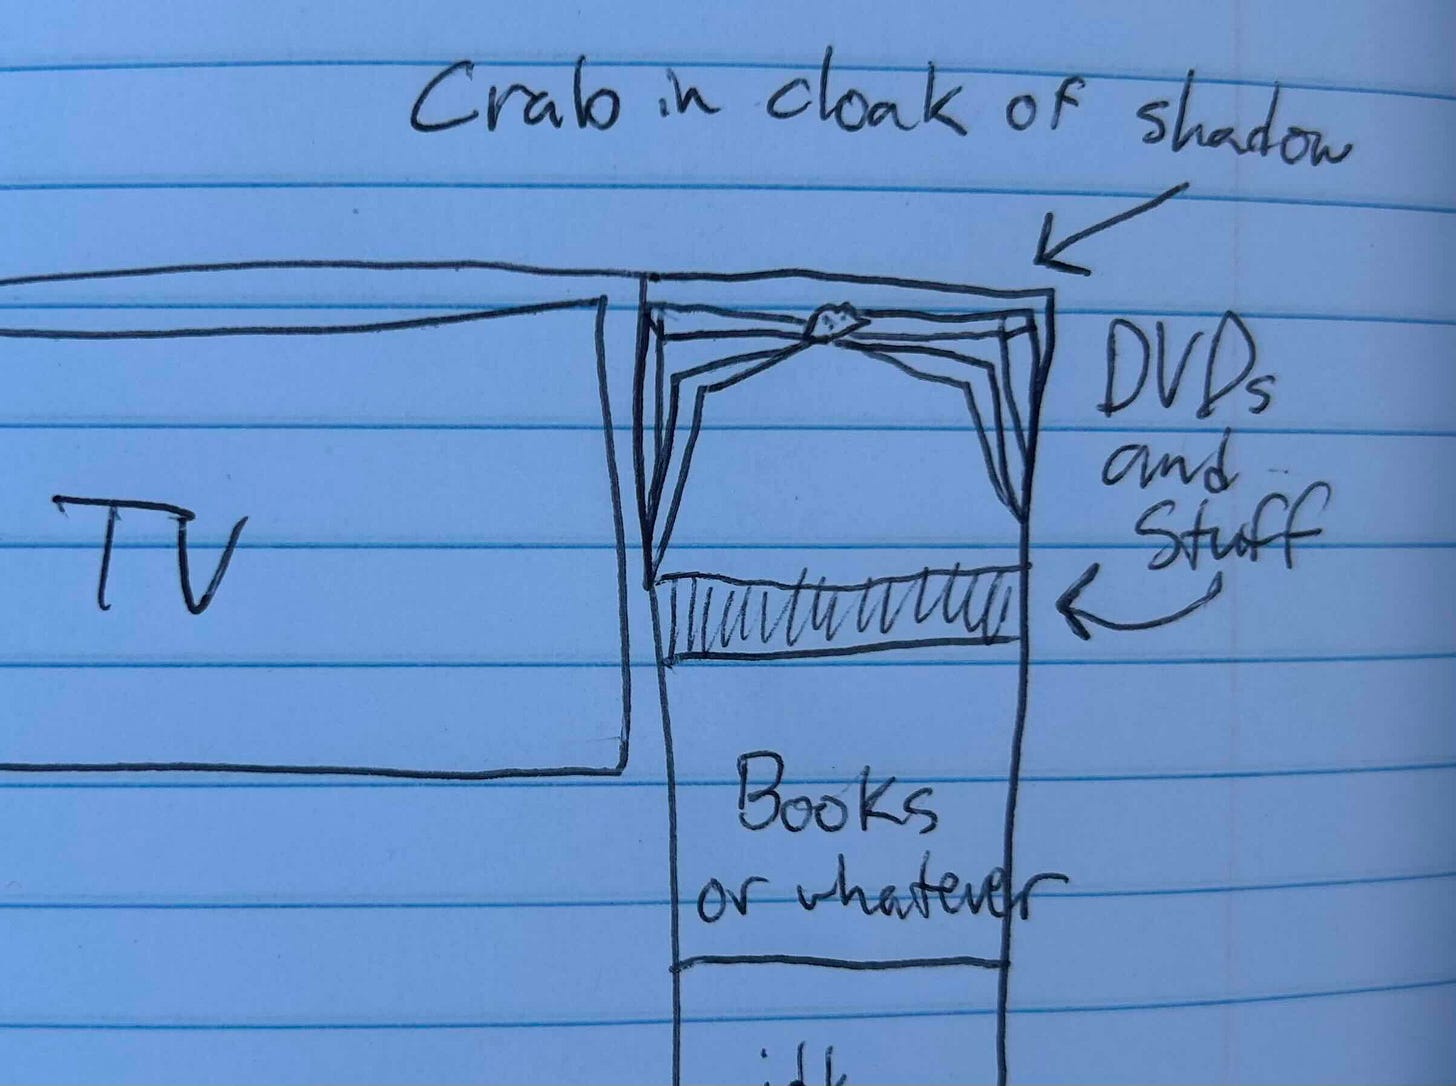 Crab in cloak of shadow
DVDs
and
Stuff
TV
Books
or whatever
idk